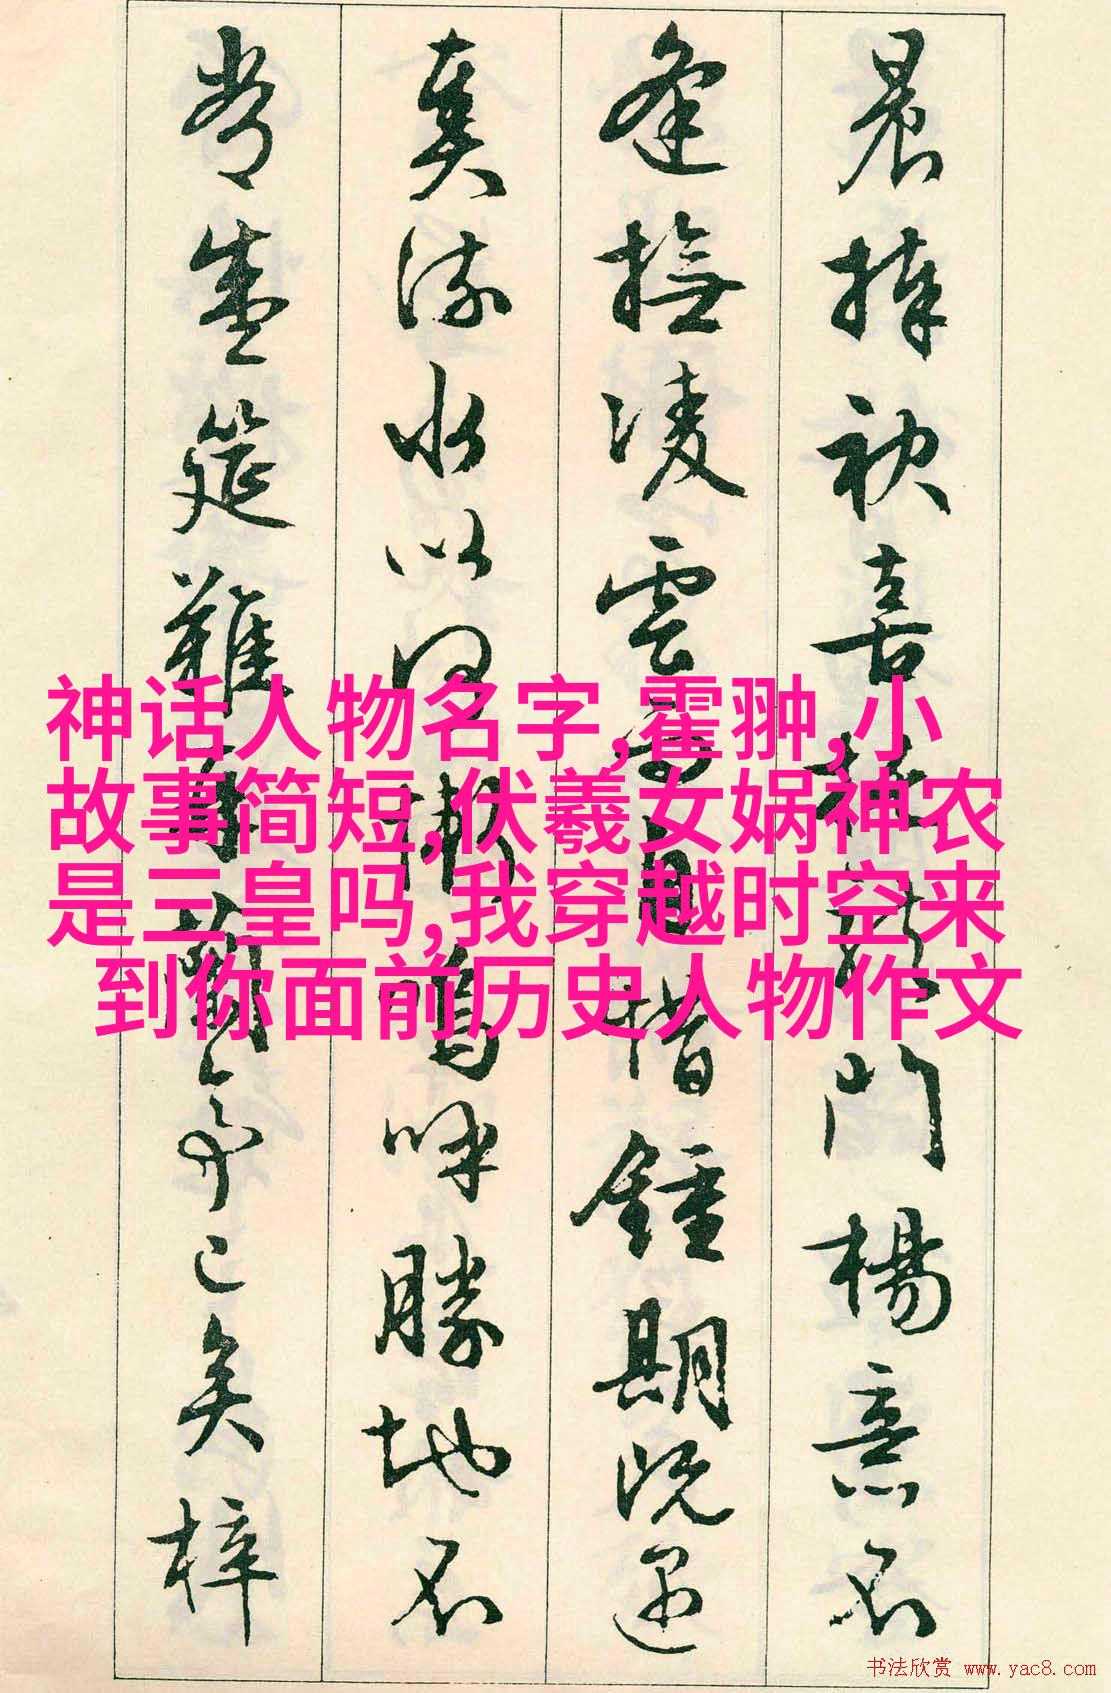 晨捧袂喜托龍門楊意不
逢撫凌雲而自惜鍾期既遇
奏流水以何慚嗚呼勝地不
常盛筵難再蘭亭已矣梓
神话人物名字,霍翀,小
故事简短,伏羲女娲神农
是三皇吗,我穿越时空来
到你面前历史人物作文
书法欣赏 www.yac8.com